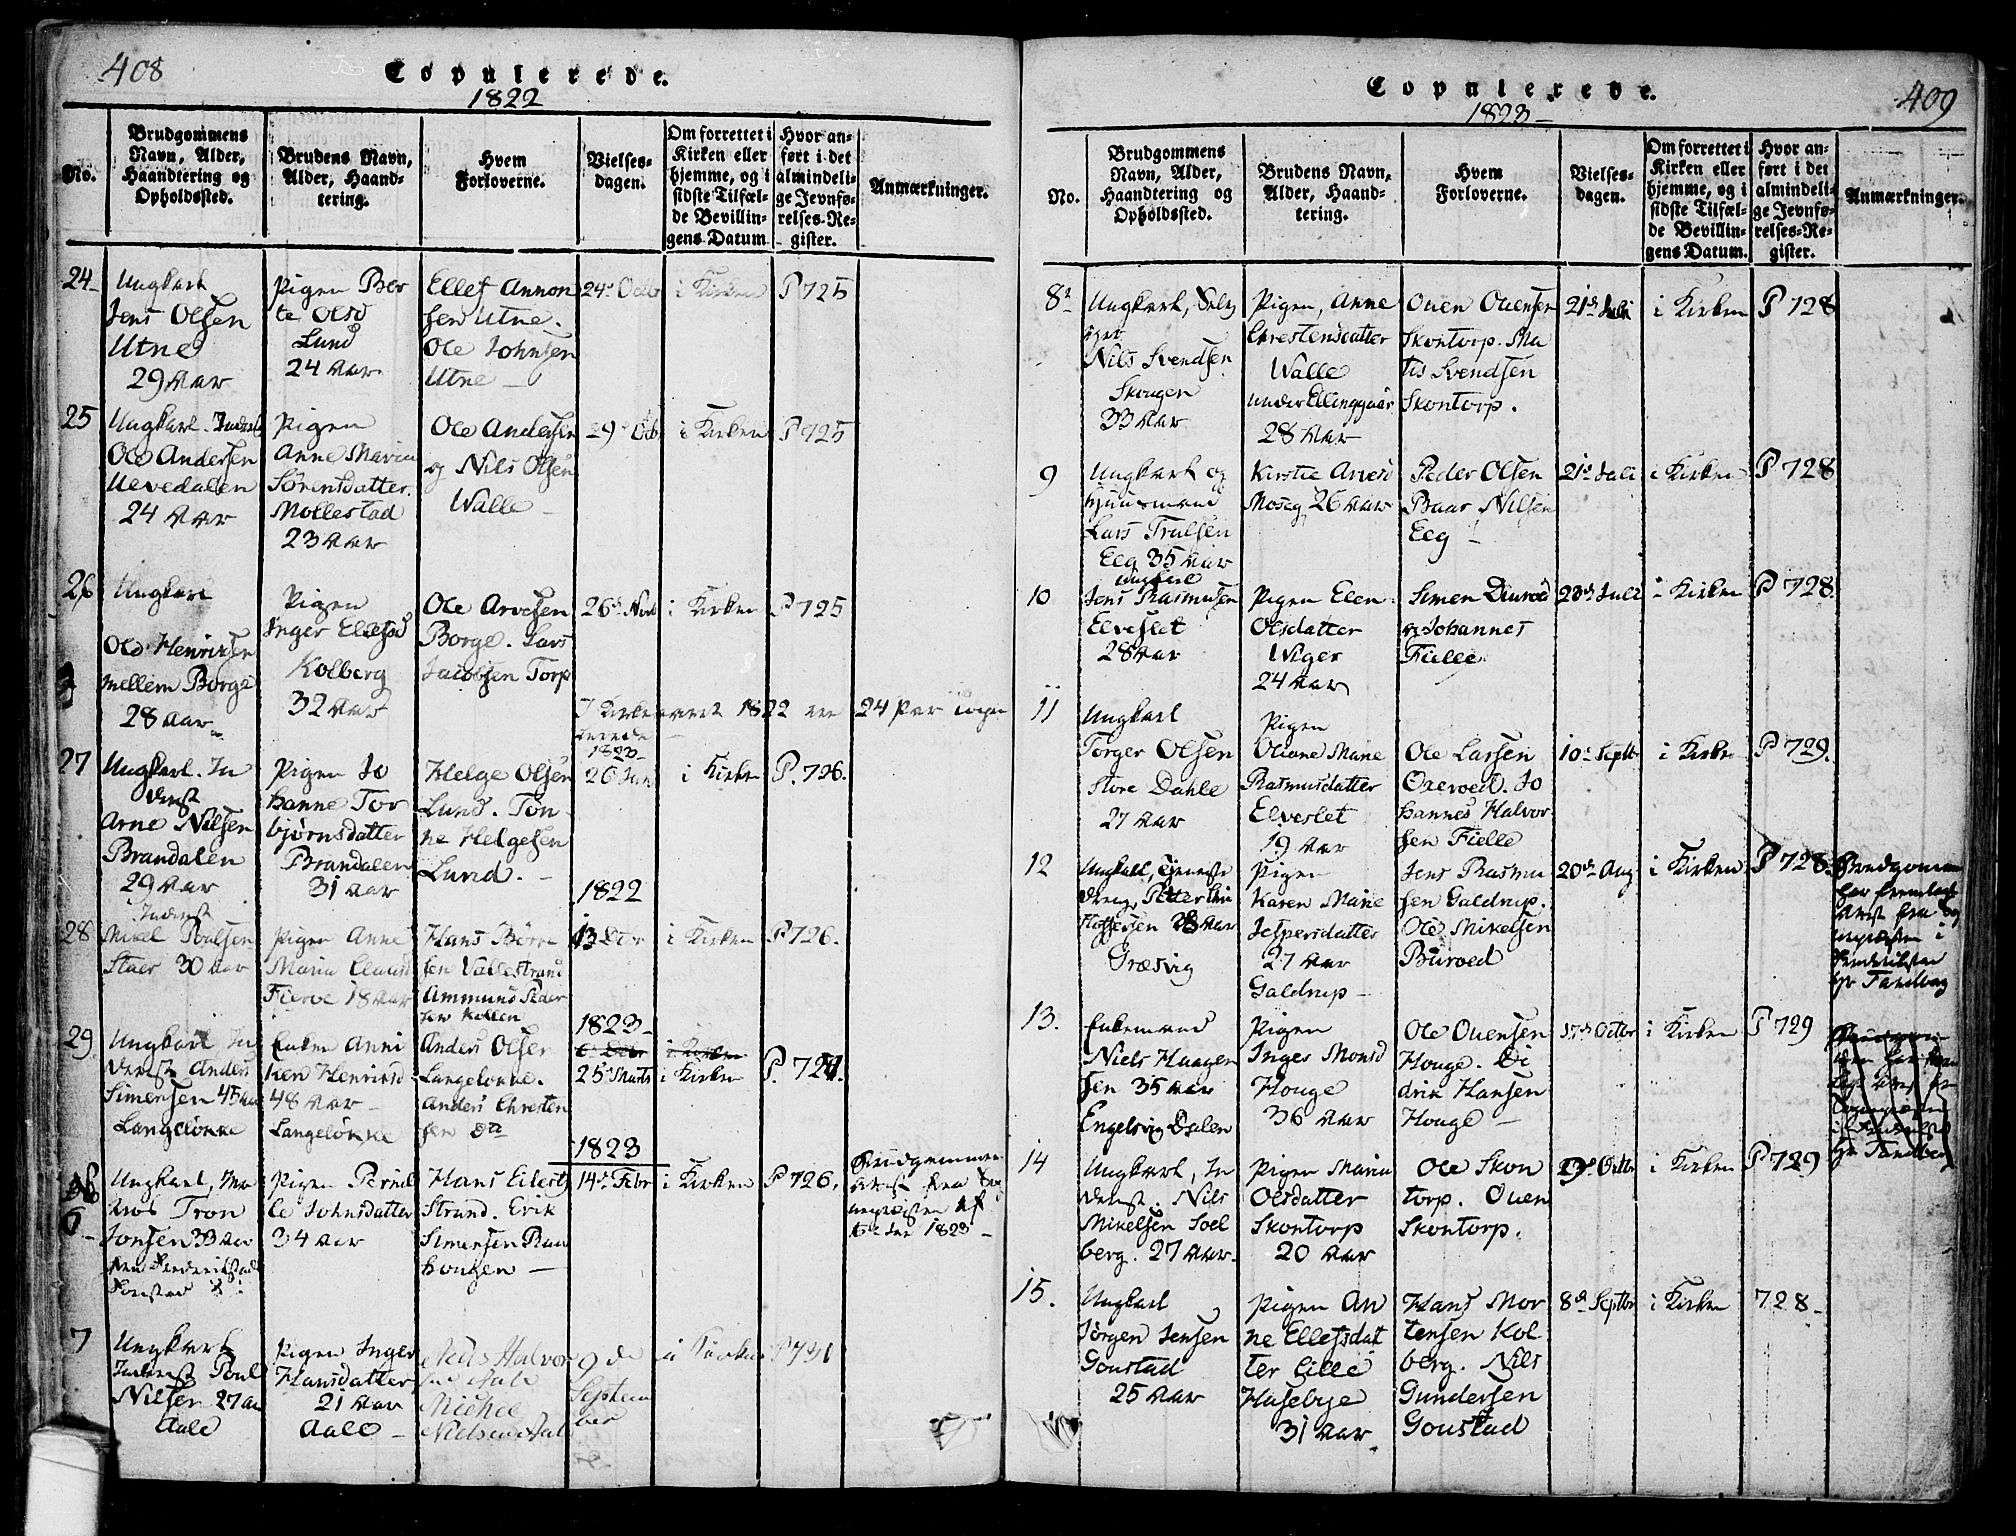 408
Copulerede.
1822
No.
Brudgommens
Navn, Alder,
Haandtering og
Opholdssted.
Brudens Navn,
Alder, Haand-
tering.
Hvem
Forloverne.
Vielses-
dagen.
Om forrettet i
Kirken eller
hjemme, og i
sidste Tilfæl-
de Bevillin-
gens Datum
Hvor an-
ført i det
almindeli-
ge Jevnfø-
relses-Re-
gister.
Anmærkninger.
24
Ungkarl
Jens Olsen
Utne
29 Aar
Pigen Ber
te Olsd
Lund
24 Aar
Ellef Annon
sen Utne
Ole Johnsen
Utne
24 Octb
i Kirken
P 725
25
Ungkarl. Inderst
Ole Andersen
Uevedalen
24 Aar
Pigen
Anne Maria
Sörensdatter
Mollestad
23 Aar
Ole Andersen
og Nils Olsen
Walle
29 Octb
i Kirken
P 725
26
Ungkarl
Ole Henriksen
mellem Borge
28 Aar
Pigen
Inger Ellefsd
Kolberg
32 Aar
Ole Arvesen
Borge. Lars
Jacobsen Torp
26 Novb
i Kirken
P 725
I Kirkeaaret 1822 24 Par
1823
27
Ungkarl. In
derst
Arne Nilsen
Brandalen
29 Aar
Pigen Jo
hanne Tor
bjørnsdatter
Brandalen
31 Aar
Helge Olsen
Lund. Tön
ne Helgesen
Lund.
26 Jan
i Kirken
P. 726.
1822
28
Inderst
Nicel Poulsen
Staer 30 Aar
Pigen Anne
Maria Clausd
Fierve 18 Aar
Hans Börre
sen Vallestrand
Ammund Peder
sen Kollen
13 Dbr
i Kirken
P 726.
1823
29
Ungkarl In
derst Anders
Simensen 45 Aar
Langelökke
Enken Anni
ken Henriksd
48 Aar
Langelökke
Anders Olsen
Langelökke.
Anders Christen
sen dto
25 Marts
i Kirken
P. 727.
1823
6
Ungkarl, Ma
tros Tron
Jonsen 33 Aar
fra Frederikstad
Forstad
Pigen Pernil
le Johnsdatter
34 Aar
Hans Eilerts
Strand. Erik
Simensen Rau
hougen
14 Febr
i Kirken
P 726.
Brudgommens
Attest fra Sog
nepræsten af
1823
7
Ungkarl
Inderst Poul
Nilsen 27 Aar
Aale
Pigen Inger
Hansdatter
21 Aar
Aale
Niels Halvor
sen Aale
Michel
Nielsen Aale
9 de
Septem
ber
i Kirken
P 731
409
Copulerede.
1823
No.
Brudgommens
Navn, Alder,
Haandtering og
Opholdssted.
Brudens Navn,
Alder, Haand-
tering.
Hvem
Forloverne.
Vielses-
dagen.
Om forrettet i
Kirken eller
hjemme, og i
sidste Tilfæl-
de Bevillin-
gens Datum.
Hvor an-
ført i det
almindeli-
ge Jevnfø-
relses-Re-
gister.
Anmærkninger.
8
Ungkarl, Selv
ejer
Nils Svendsen
Skougen
33 Aar
Pigen, Anne
Chrestensdatter
Walle
under Ellinggaar
28 Aar
Ouen Ouensen
Skontorp. Ma
tis Svendsen
Skontorp.
21 Juli
i Kirken
P 728
9
Ungkarl og
Huusmand
Lars Trulsen
Eeg 35 Aar
Kirstie Arvesd
Moseg 26 Aar
Peder Olsen
Baar Nilsen
Eeg
21 Juli
i Kirken
P 728
10
Ungkarl
Jens Rasmusen
Elveslet
28 Aar
Pigen Elen
Olsdatter
Wiger
24 Aar
Simen Diuroed
og Johannes
Fielle
28 Juli
i Kirken
P 728.
11
Ungkarl
Torger Olsen
Store Dahle
27 Aar
Pigen
Oliane Marie
Rasmusdatter
Elveslet
19 Aar
Ole Larsen
Oxeroed. Jo
hannes Halvor
sen Fielle
10 Septbr
i Kirken
P 729.
12
Ungkarl, Tjeneste
dreng, Petter Chri
stoffersen 28 Aar
Græsvig
Pigen
Karen Marie
Jespersdatter
27 Aar
Galdrup
Jens Rasmu
sen Galdrup.
Ole Mikelsen
Buroed
20 Aug
i Kirken
P 728.
Brudgommen
har fremlagt
Attest fra Sog
nepræsten i
Frederiksta
Hr Tandberg
13.
Enkemand
Niels Haagen
sen 35 Aar
Engelsvig Dalen
Pigen
Inges Monsd
Houge
36 Aar
Ole Ouensen
Houge. Di
drik Hansen
Houge
17 Octbr
i Kirken
P 729
14
Ungkarl, In
derst. Nils
Mikelsen Soel
berg. 27 Aar.
Pigen Maria
Olsdatter
Skontorp
20 Aar
Ole Skon
torp. Ouen
Skontorp.
29 Octbr
i Kirken
P 729
15.
Ungkarl
Jörgen Jensen
Gonstad
25 Aar
Pigen An
ne Ellefsdat
ter Lille
Hasebye
31 Aar
Hans Mor
tensen Kol
berg. Nils
Gundersen
Gonstad
8 Septbr
i Kirken
728